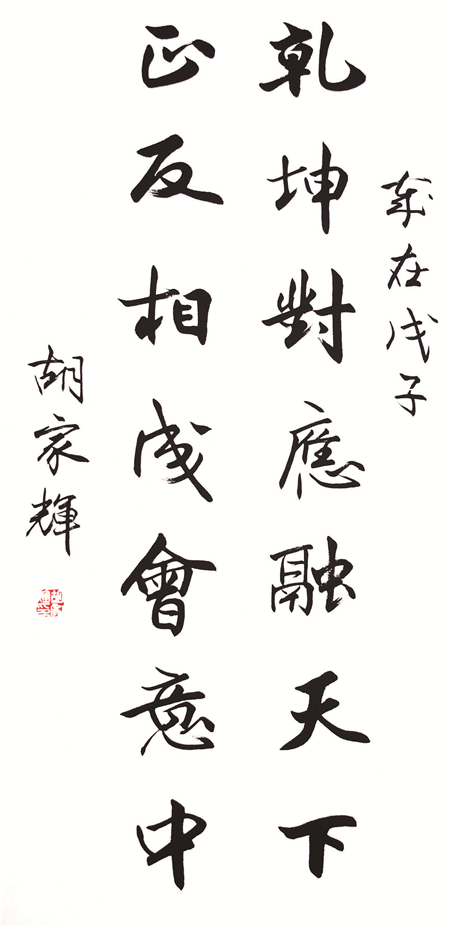 歲在戊子
乾坤對應融天下
正反相成會意中
胡家輝